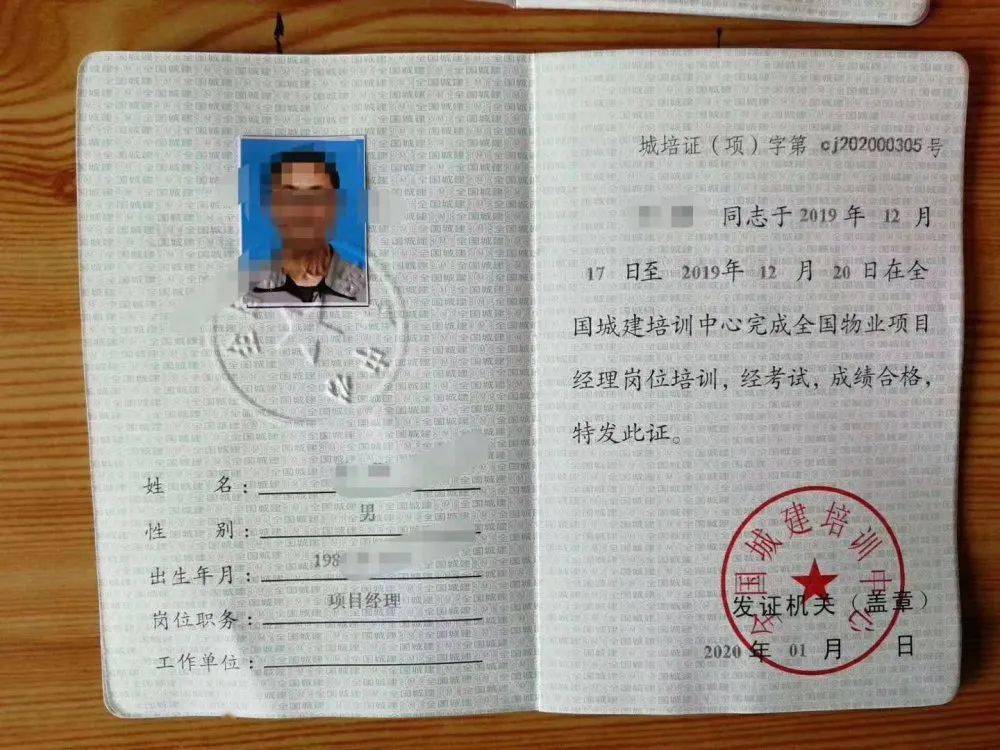 姓 名：
性 别： 男
出生年月： 198
岗位职务： 项目经理
工作单位：
城培证（项）字第 cj202000305 号
同志于 2019 年 12 月
17 日至 2019年 12 月 20 日在全
国城建培训中心完成全国物业项目
经理岗位培训，经考试，成绩合格，
特发此证。
全国城建培训中心
发证机关（盖章）
2020 年 01 月 日